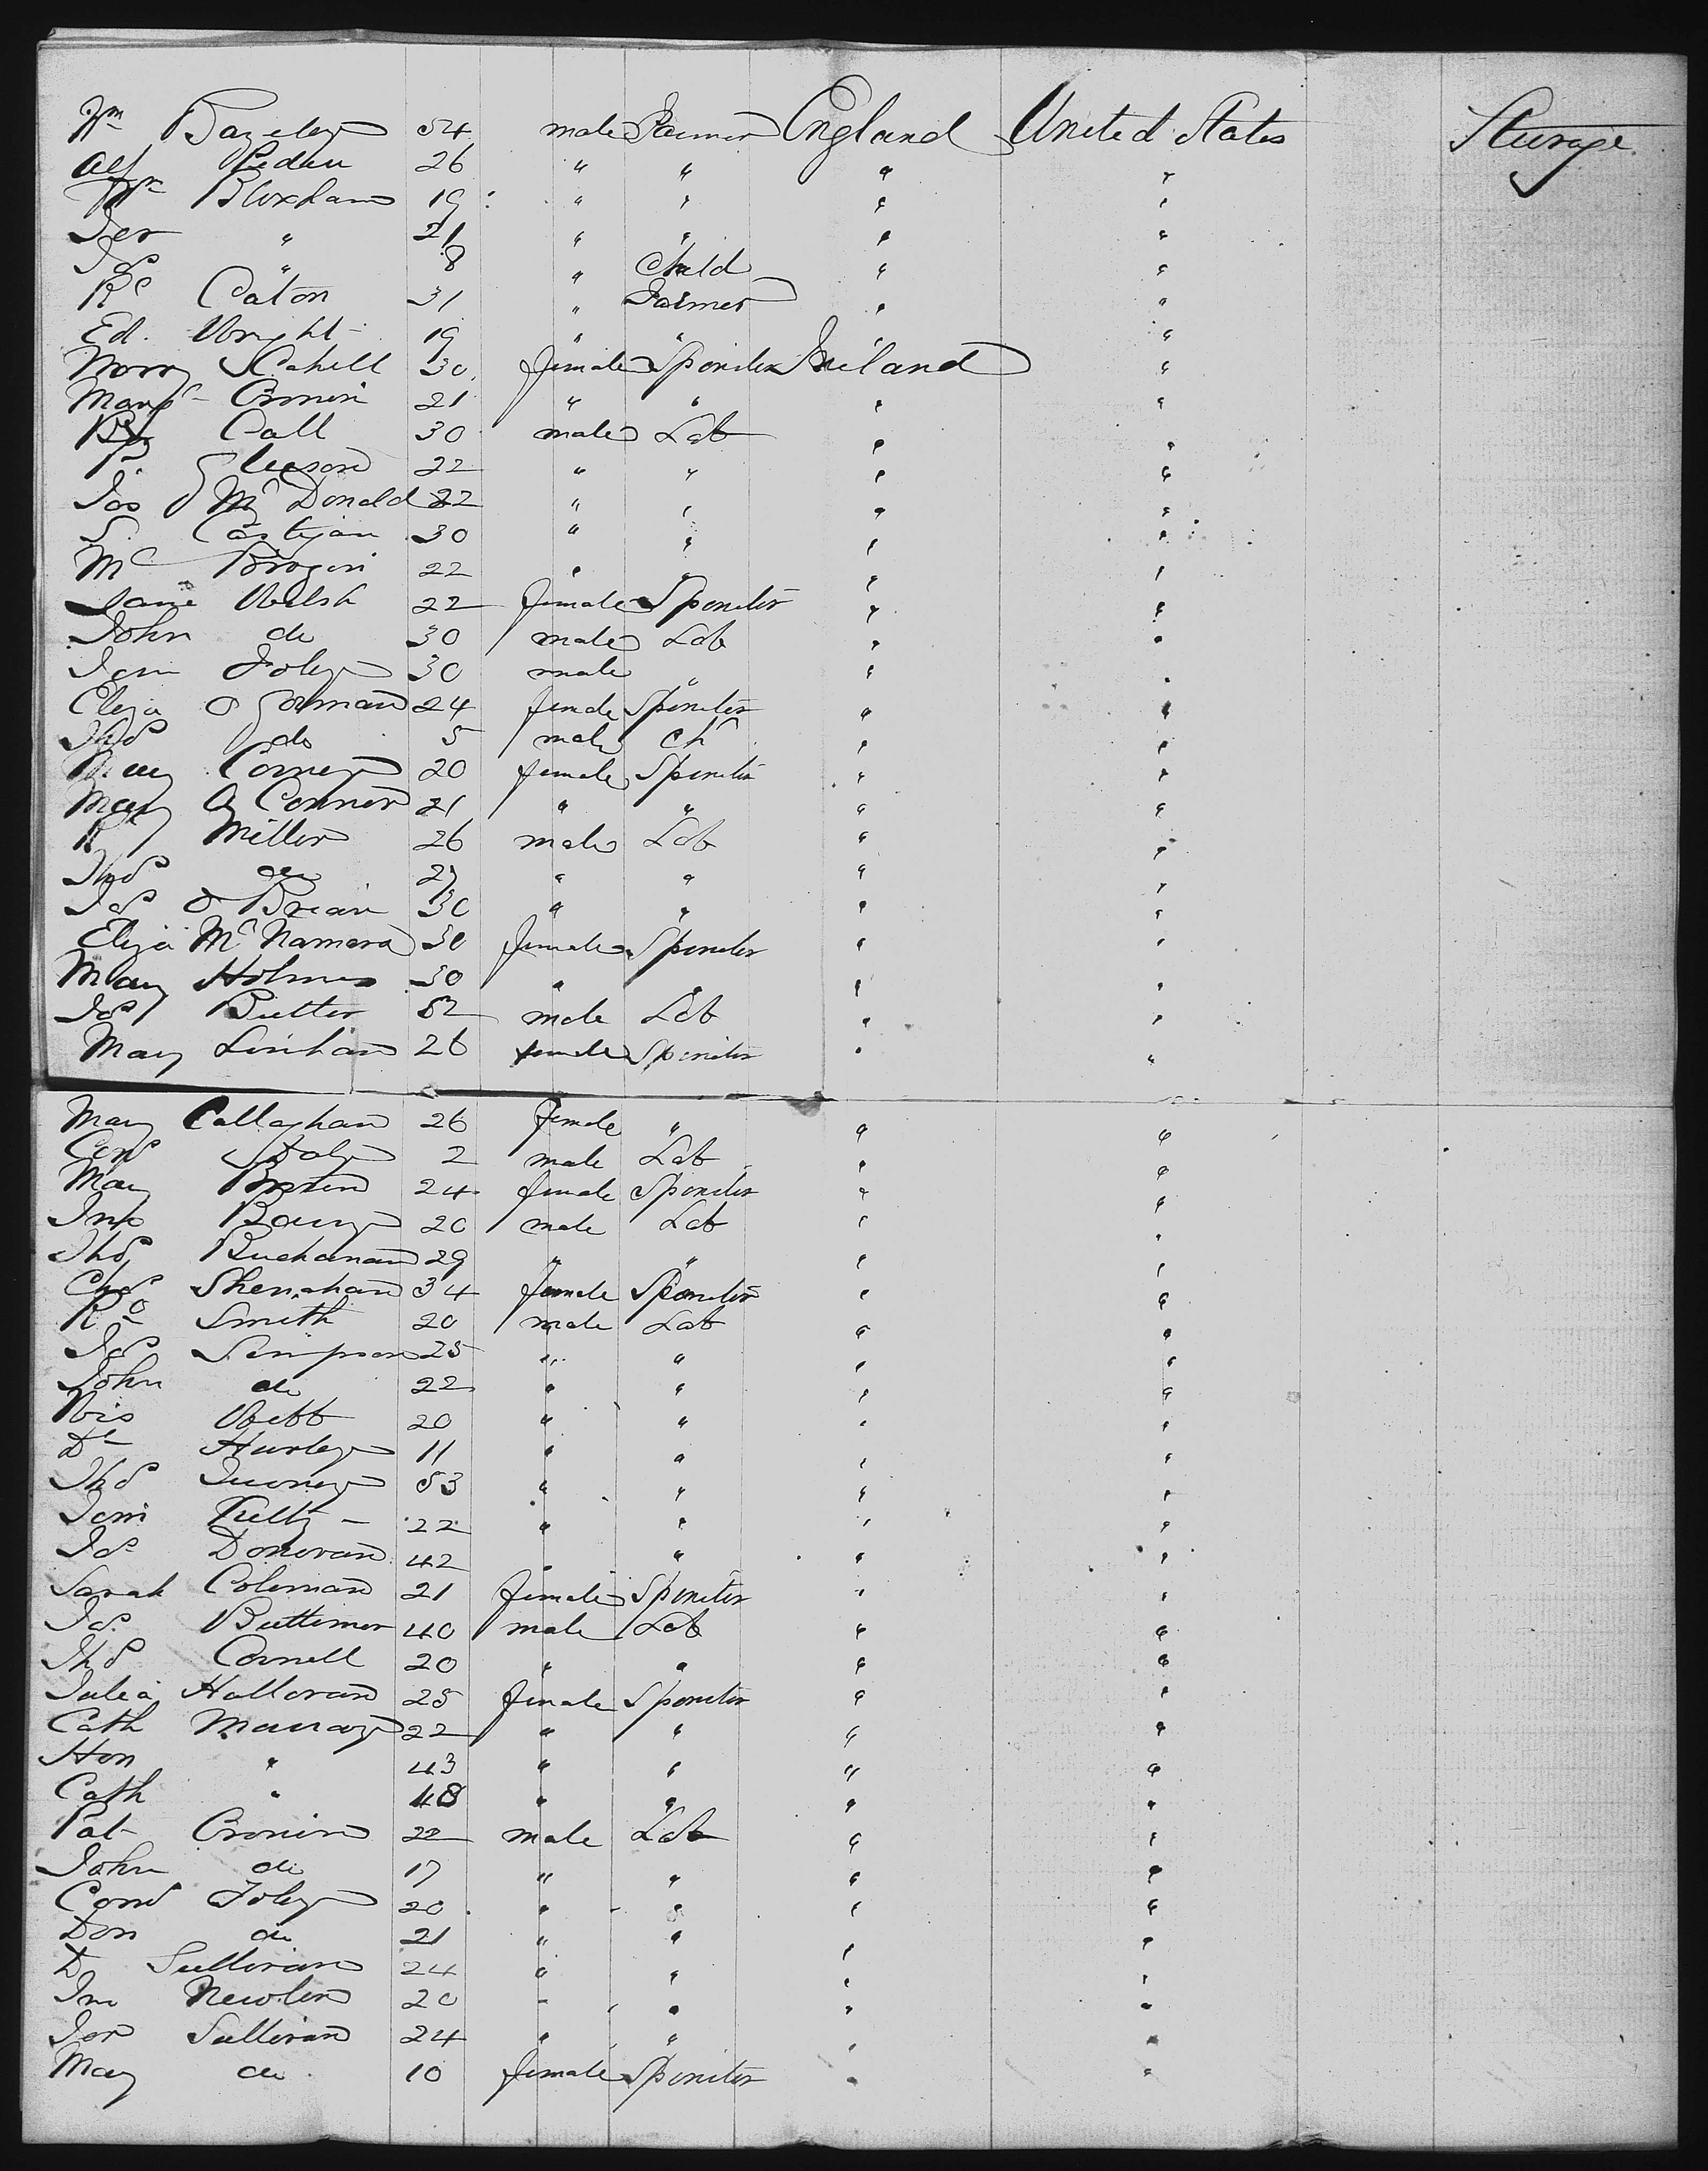 Wm Bazeley 54 male Farmer England United States Steerage
Alf Peden 26 " " " "
Wm Bloxham 19 " " " "
Jer " 21 " " " "
Jas " 8 " Child " "
Rd Caton 31 " Farmer " "
Ed. Wright 19 " " " "
Norry Cahill 30 female Spinster Ireland "
Margt Cronin 21 " " " "
Call 30 male Lab " "
P. Gleeson 22 " " " "
Jas McDonald 22 " " " "
S. Costigan 30 " " " "
Mc Brogin 22 " " " "
Jane Welsh 22 female Spinster " "
John do 30 male Lab " "
Jem Foley 30 male " " "
Eliza O Gorman 24 female Spinster " "
Thos do 5 male Ch " "
Mary Corney 20 female Spinster " "
Mary O Connor 21 " " " "
Rd Miller 26 male Lab " "
Thos do 27 " " " "
Jas O Brian 30 " " " "
Eliza McNamara 30 female Spinster " "
Mary Holmes 30 " " " "
Jas Butler 52 male Lab " "
Mary Linihan 26 female Spinster " "
Mary Callaghan 26 female " " "
Cors Daly 2 male Lab " "
Mary Breen 24 female Spinster " "
Jno Barry 20 male Lab " "
Thos Buchanan 29 " " " "
Chas Shenahan 34 female Spinster " "
Rd Smith 20 male Lab " "
Jas Simpson 25 " " " "
John do 22 " " " "
Webb 20 " " " "
Dl Hurley 11 " " " "
Thos Twomey 53 " " " "
Jem Kelly 22 " " " "
Jas Donovan 42 " " " "
Sarah Coleman 21 female Spinster " "
Jas Buttimer 40 male Lab " "
Thos Connell 20 " " " "
Julia Halloran 25 female Spinster " "
Cath Murray 22 " " " "
Hon " 43 " " " "
Cath " 48 " " " "
Pat Cronin 22 male Lab " "
John do 17 " " " "
Cors Foley 20 " " " "
Don do 21 " " " "
D Sullivan 24 " " " "
Jno Newlin 20 " " " "
Jer Sullivan 24 " " " "
Mary do 10 female Spinster " "